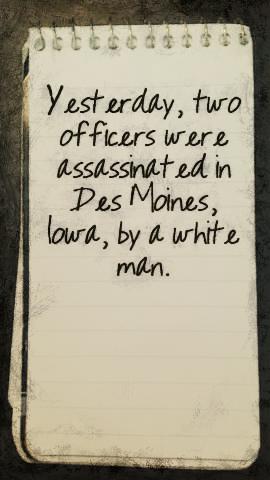 Yesterday, two
officers were
assassinated in
Des Moines,
Iowa, by a white
man.